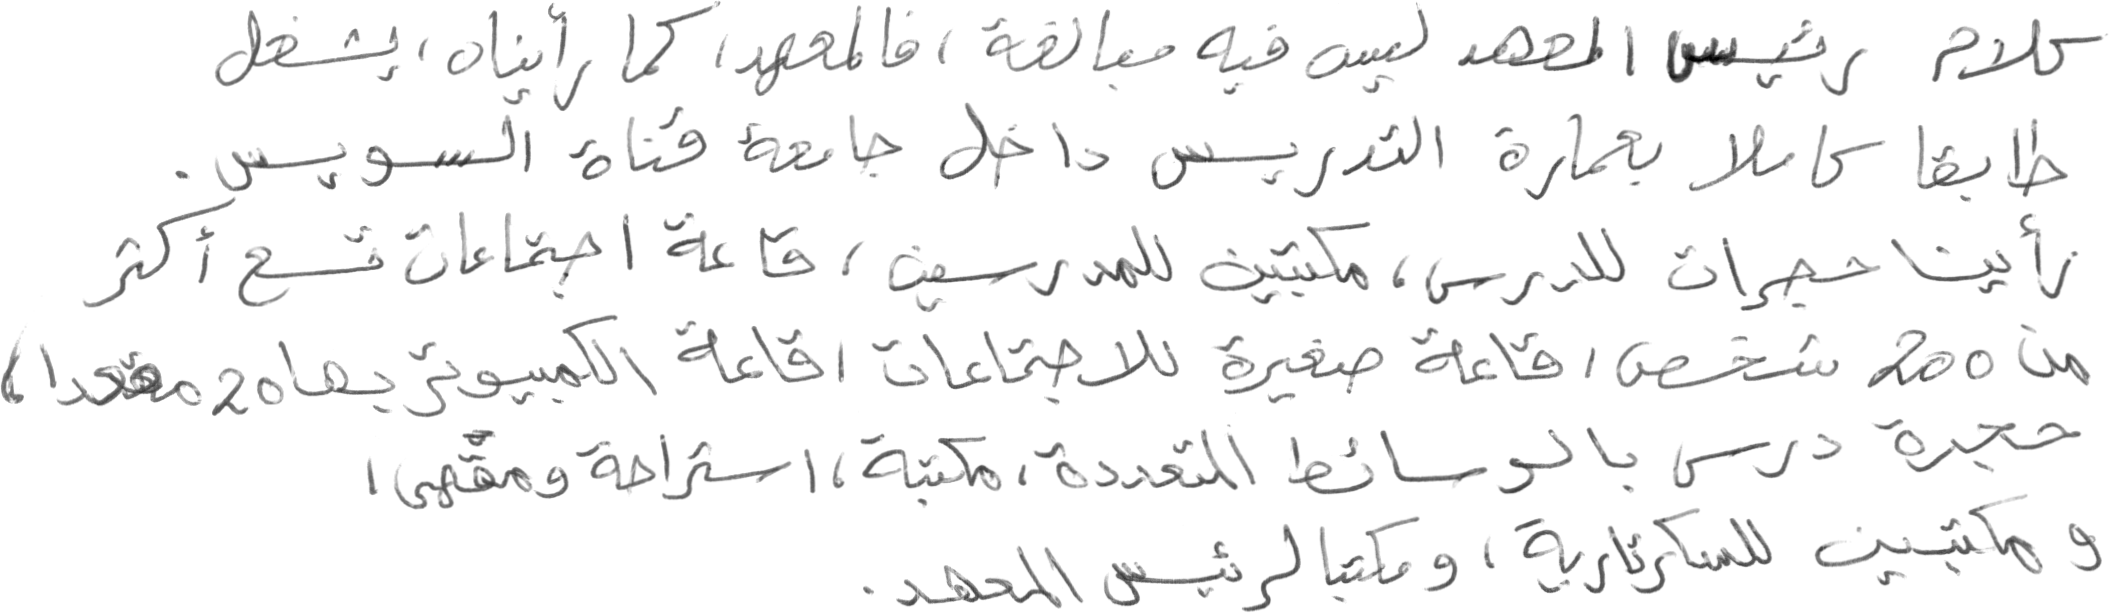 كلام رئيس المعهد ليس فيه مبالغة، فالمعهد، كما رأيناه، يشغل
طابقا كاملا بعمارة التدريس داخل جامعة قناة السويس.
رأينا حجرات للدرس، مكتبين للمدرسين، قاعة اجتماعات تسع أكثر
من 200 شخص، قاعة صغيرة للاجتماعات، قاعة الكمبيوتر بها 20 مقعدا،
حجرة درس بالوسائط المتعددة، مكتبة، استراحة ومقهى،
ومكتبين للسكرتارية، ومكتبا لرئيس المعهد.